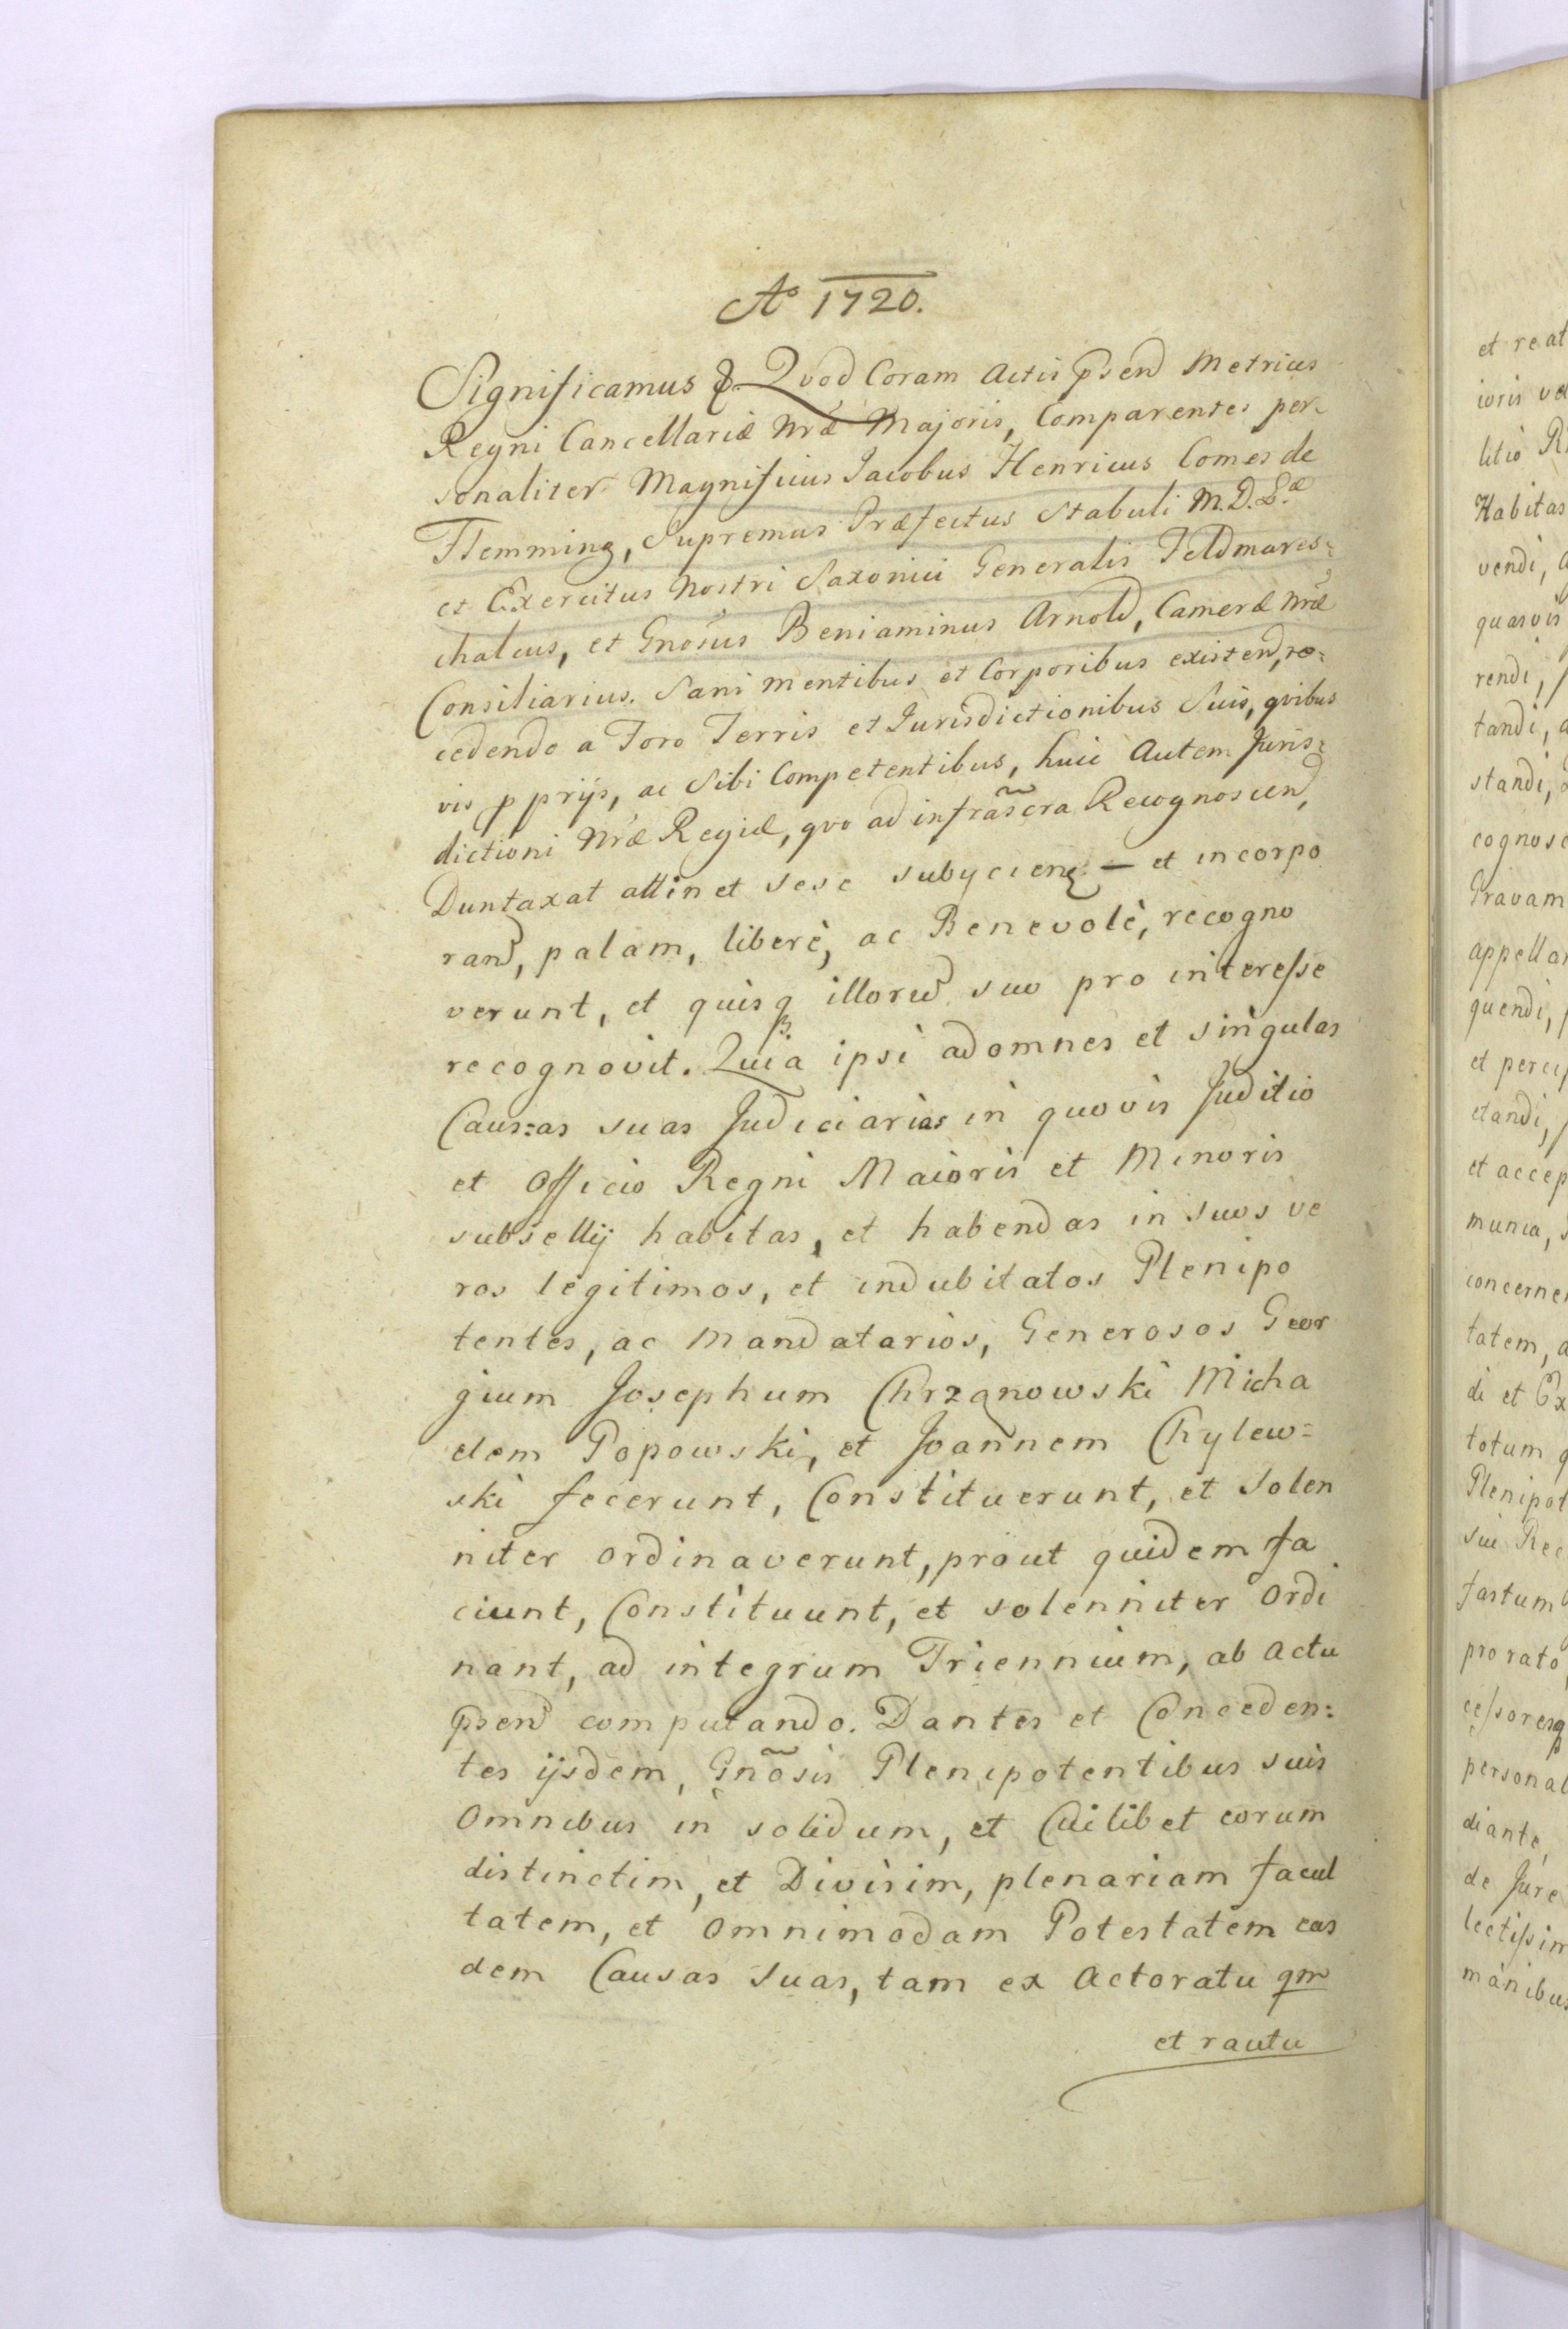 Aº 1720.
Significamus &. Qvod Coram Actis p̃send Metrices
Regni Cancellariæ Nr̃æ Majoris, Comparentes per-
sonaliter Magnificus Jacobus Henricus Comes de
Flemming, Supremus Præfectus Stabuli M.D.L.æ
et Exercitus Nostri Saxonici Generalis Feldmares:
chalcus, et Gnosus Beniaminus Arnold, Cameræ Nr̃æ
Consiliarius. Sani mentibus et Corporibus existend, re:
cedendo a Foro Terris et Jurisdictionibus Suis, qvibus
vis pprijs, ac Sibi Competentibus, huic Autem Juris:
dictioni Nr̃æ Regiæ, qvo ad infrãscra Recognoscend,
Duntaxat attinet sese subycieng — et incorpo
rand, palam, liberè, ac Benevolè, recogno
verunt, et quisq illorũ suo pro interesse
recognovit. Quia ipsi ad omnes et singulas
Caus:as suas Judiciarias in quovis Juditio
et Officio Regni Maioris et Minoris
subsellij habitas, et habendas in suos ve
ros legitimos, et indubitatos Plenipo
tentes, ac Mandatarios, Generosos Geor
gium Josephum Chrzanowski Micha
elem Popowski, et Joannem Chylew=
ski fecerunt, Constituerunt, et Solen
niter ordinaverunt, prout quidem fa
ciunt, Constituunt, et solenniter Ordi
nant, ad integrum Triennium, ab Actu
p̃send computando. Dantes et Conceden:
tes ijsdem, Gnõsis Plenipotentibus suis
Omnibus in solidum, et Cuilibet eorum
distinctim, et Divisim, plenariam facul
tatem, et omnimodam Potestatem eas
dem Causas Suas, tam ex Actoratu qm
et rautu
et reat
ioris ve
litio
Habitas
vendi,
quasvis
rendi,
tandi,
standi,
cognosc
Gravam
appellar
quendi,
et percip
etandi,
et accep
munia,
concerne
tatem,
di et Ex
totum
Plenipot
sui Rec
factum
pro rato
cessoresq
personal
diante,
de Jure
lectissim
manibus